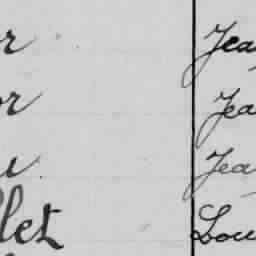 r Jea
or Jea
u Jea
let Lou